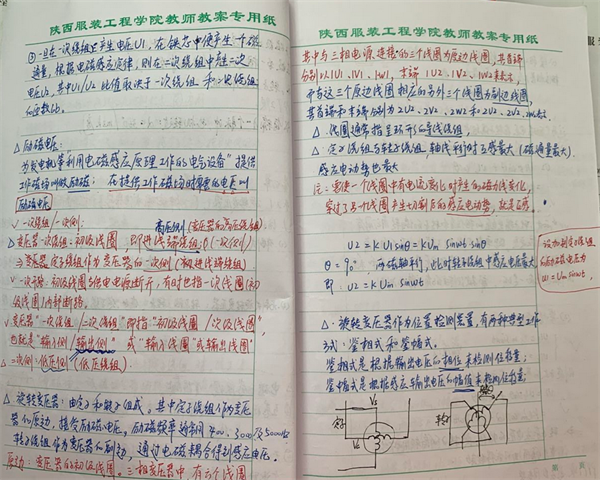 陕西服装工程学院教师教案专用纸
②一旦在一次绕组上产生电压U1,在铁芯中便产生一个磁
通量,依据电磁感应定律,则在二次绕组中产生二次
电压U2,其中U1/U2比值取决于一次绕组和二次绕组
的匝数比。
△励磁电压:
为发电机等利用电磁感应原理工作的电气设备"提供
工作磁场叫做励磁;在提供工作磁场时需要的电压叫
励磁电压
✓一次绕组/一次侧:
高压侧(变压器的高压绕组)
变压器一次绕组:初级线圈,即进线端绕组
⇒变压器定子绕组作为变压器的一次侧(初进线端绕组)
级线圈)内部断路.
✓变压器"一次绕组/二次绕组"即指"初级线圈/次级线圈"
也就是"输入侧/输出侧"或"输入线圈"或输出线圈"
二次侧:低压侧(低压绕组).
△旋转变压器:由定子和转子组成。其中定子绕组作为变压
器的原边,接受励磁电压,励磁频率通常用400、3000及5000Hz
转子绕组作为变压器的副边,通过电磁耦合得到感应电压.
原边:变压器的初级线圈。三相变压器中,有六个线圈
陕西服装工程学院教师教案专用纸
其中与三相电源连接的三个线圈为原边线圈,其首端
分别以1U1、1V1、1W1,末端1U2、1V2、1W2来表示,
而与这三个原边线圈相应的另外三个线圈为副边线圈,
其首端和末端分别为
△线圈通常指呈环形的导线绕组,
△定子绕组与转子绕组,轴线平行时互感最大(磁通量最大).
感应电动势也最大
注:需使一个线圈中有电流变化时产生的磁力线变化,
穿过了另一个线圈产生切割后的感应电动势,就是互感。
U2 = K U1 sinθ = K Um sinwt sinθ
θ = 90° 两磁轴平行,此时转子绕组中感应电压最大
即:U2 = K Um sinwt
设加到定子绕组
的励磁电压为
U1 = Um sinwt
△.旋转变压器作为位置检测装置,有两种典型工作
方式:鉴相式和鉴幅式。
鉴相式是根据输出电压的相位来检测位移量;
鉴幅式是根据感应输出电压的幅值来检测位移量.
定子
转子
第 页